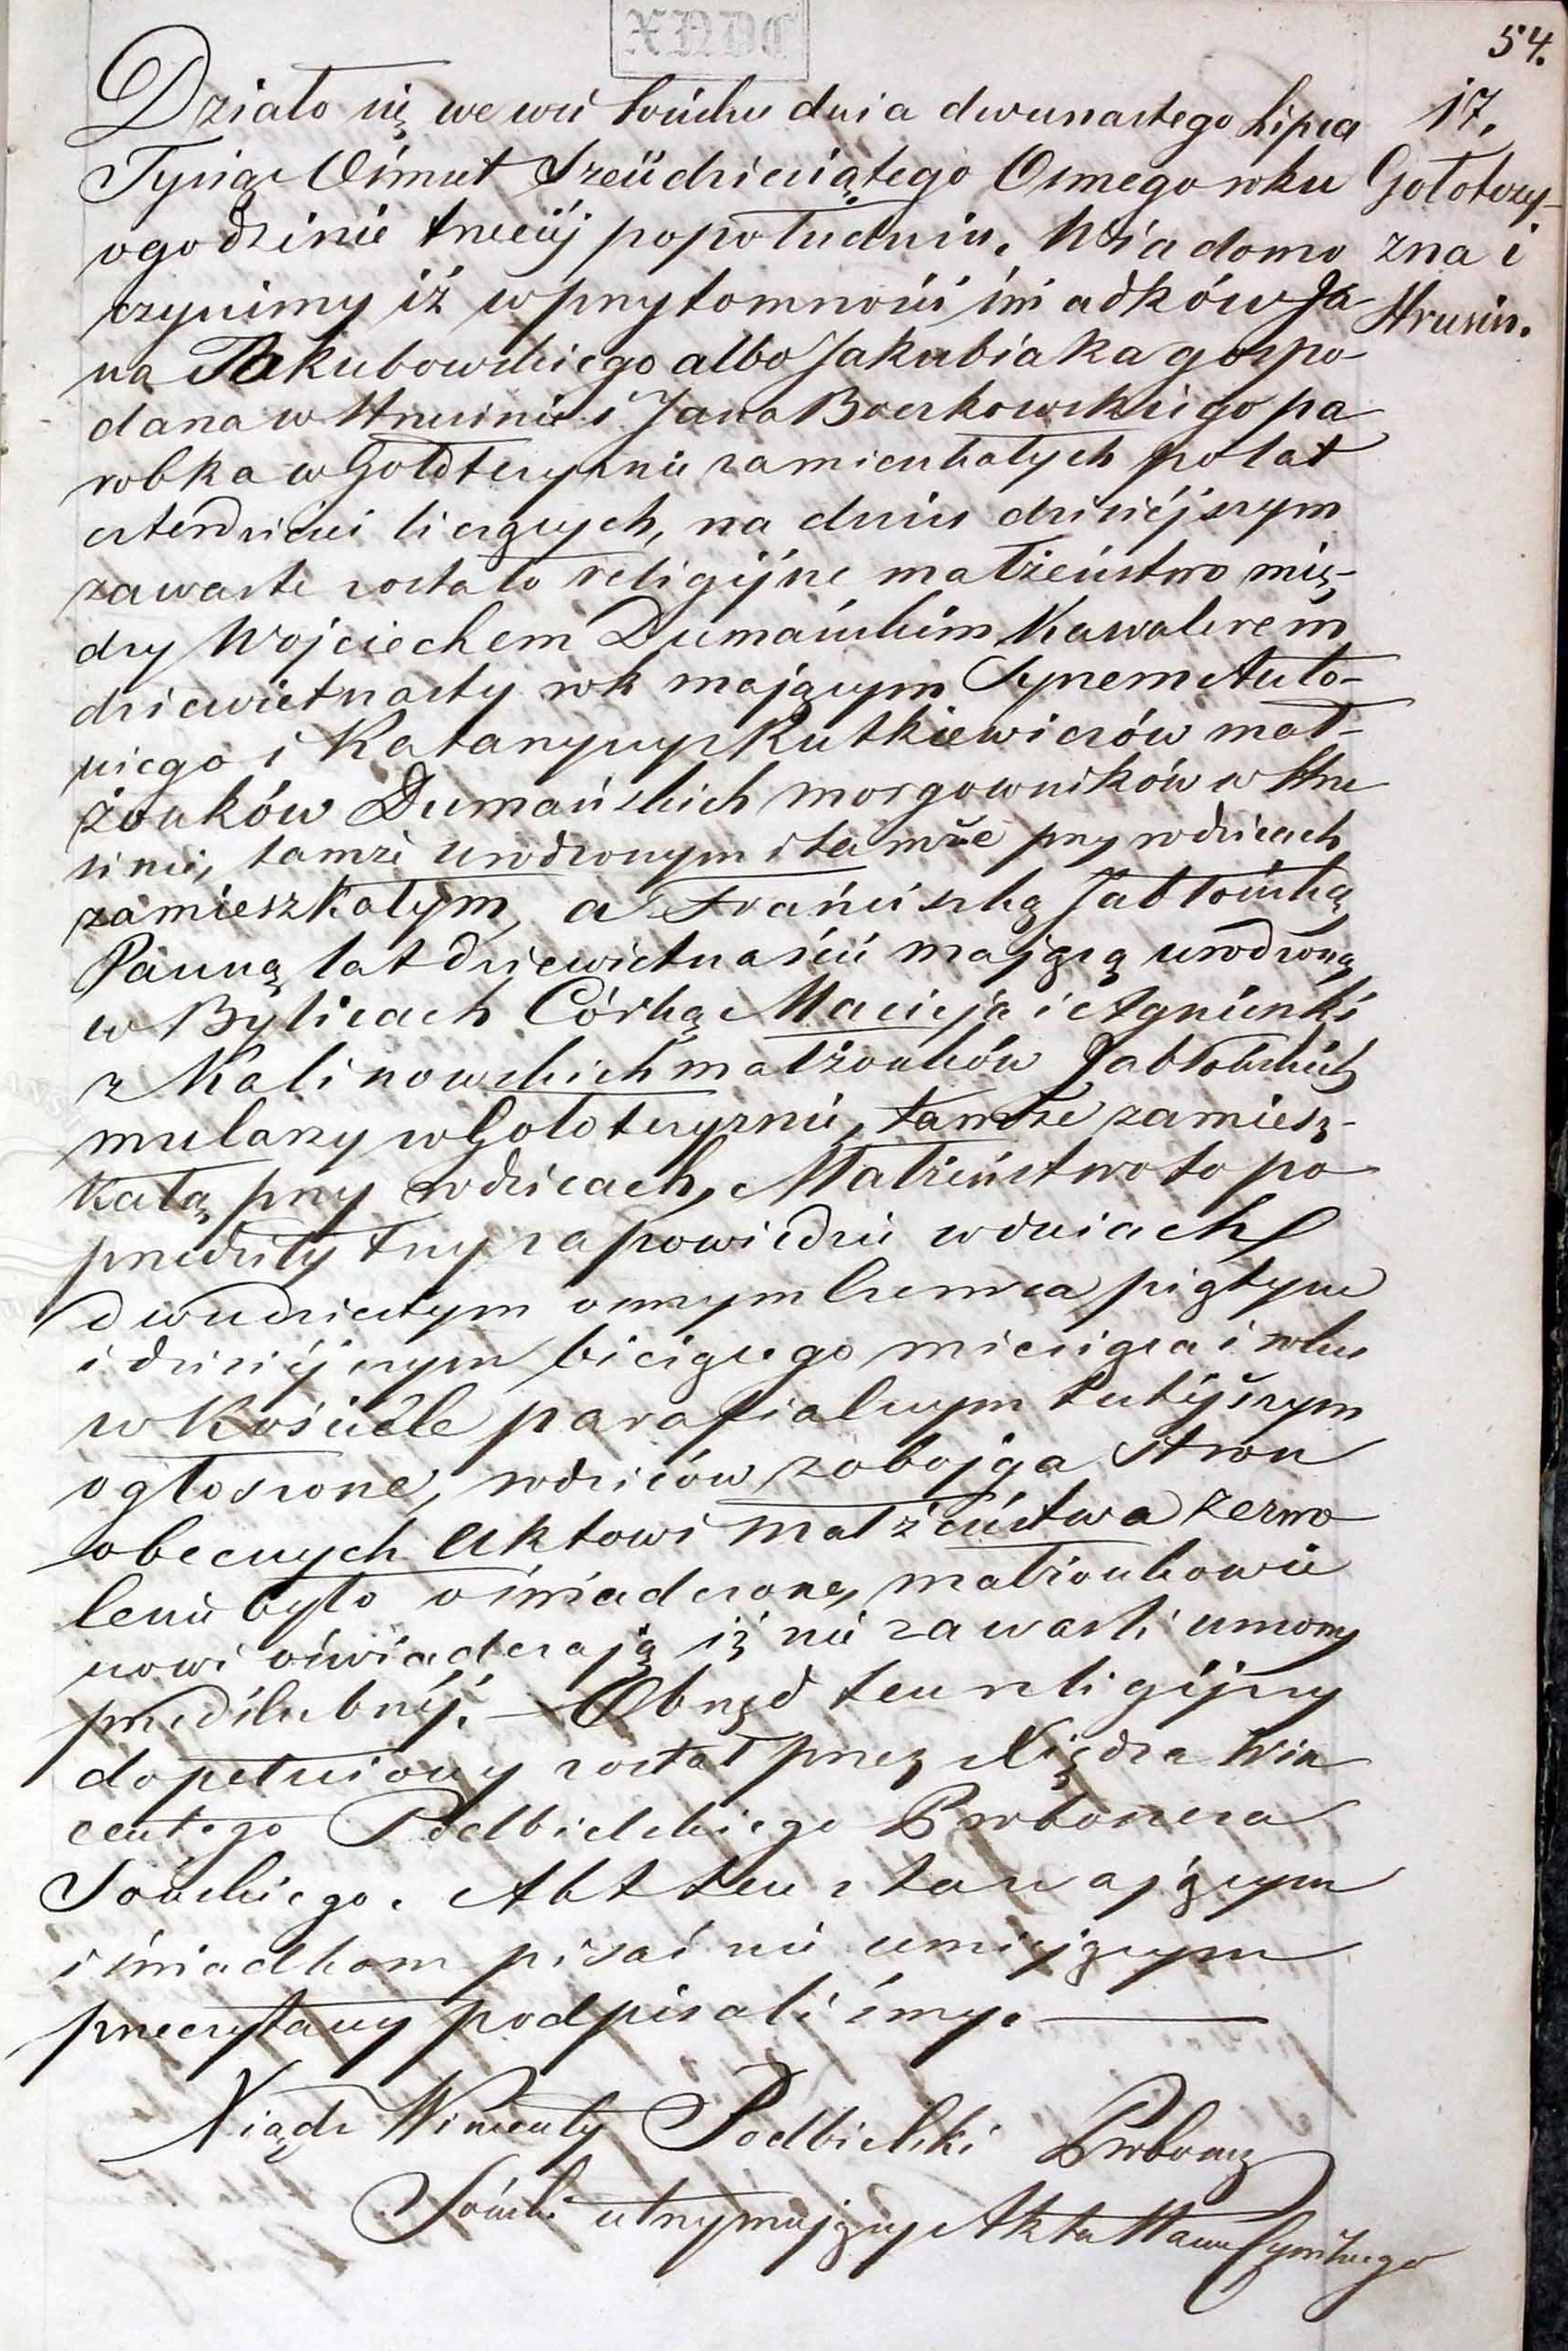 XNDC
54.
17.
Gołotczy-
zna i
Strusin.
Działo się we wsi Sońsku dnia dwunastego Lipca
Tysiąc Ośmset Sześćdziesiątego Osmego roku
o godzinie trzeciej popołudniu. Wiadomo
czynimy iż w przytomności świadków Ja-
na Jakubowskiego albo Jakubiaka gospo-
darza w Strusinie i Jana Boczkowskiego pa
robka w Gołotczyznie zamieszkałych po lat
czterdzieści liczących, na dniu dzisiéjszym
zawarte zostało religijne małżeństwo mię-
dzy Wojciechem Dumańskim Kawalerem
dziewiętnasty rok mającym Synem Anto-
niego i Katarzyny z Rutkiewiczów mał-
żonków Dumańskich morgowników w Stru
sinie, tamże urodzonym i tamże przy rodzicach
zamieszkałym, a Franciszką Jabłońską
Panną lat dziewiętnaście mającą urodzoną
w Bylicach Córką Macieja i Agnieszki
z Kalinowskich małżonków Jabłońskich
mularzy w Gołotczyznie, tamże zamiesz-
kałą przy rodzicach, Małżeństwo to po
przedziły trzy zapowiedzie w dniach
dwudziestym ósmym Czerwca piątym
i dzisiéjszym bieżącego miesiąca i roku
w Kościele parafialnym tutéjszym
ogłoszone, rodziców z obojga stron
obecnych Aktowi małżeństwa zezwo
lenie było oświadczone, małżonkowie
nowi oświadczają iż nie zawarli umowy
przedślubnéj. — Obrzęd ten religijny
dopełniony został przez Xiędza Win
centego Podbielskiego Proboszcza
Sońskiego. Akt ten stawającym
i świadkom pisać nie umiejącym
przeczytany podpisaliśmy. —
Xiądz Wincenty Podbielski Proboszcz
Soński utrzymujący Akta Stanu Cywilnego